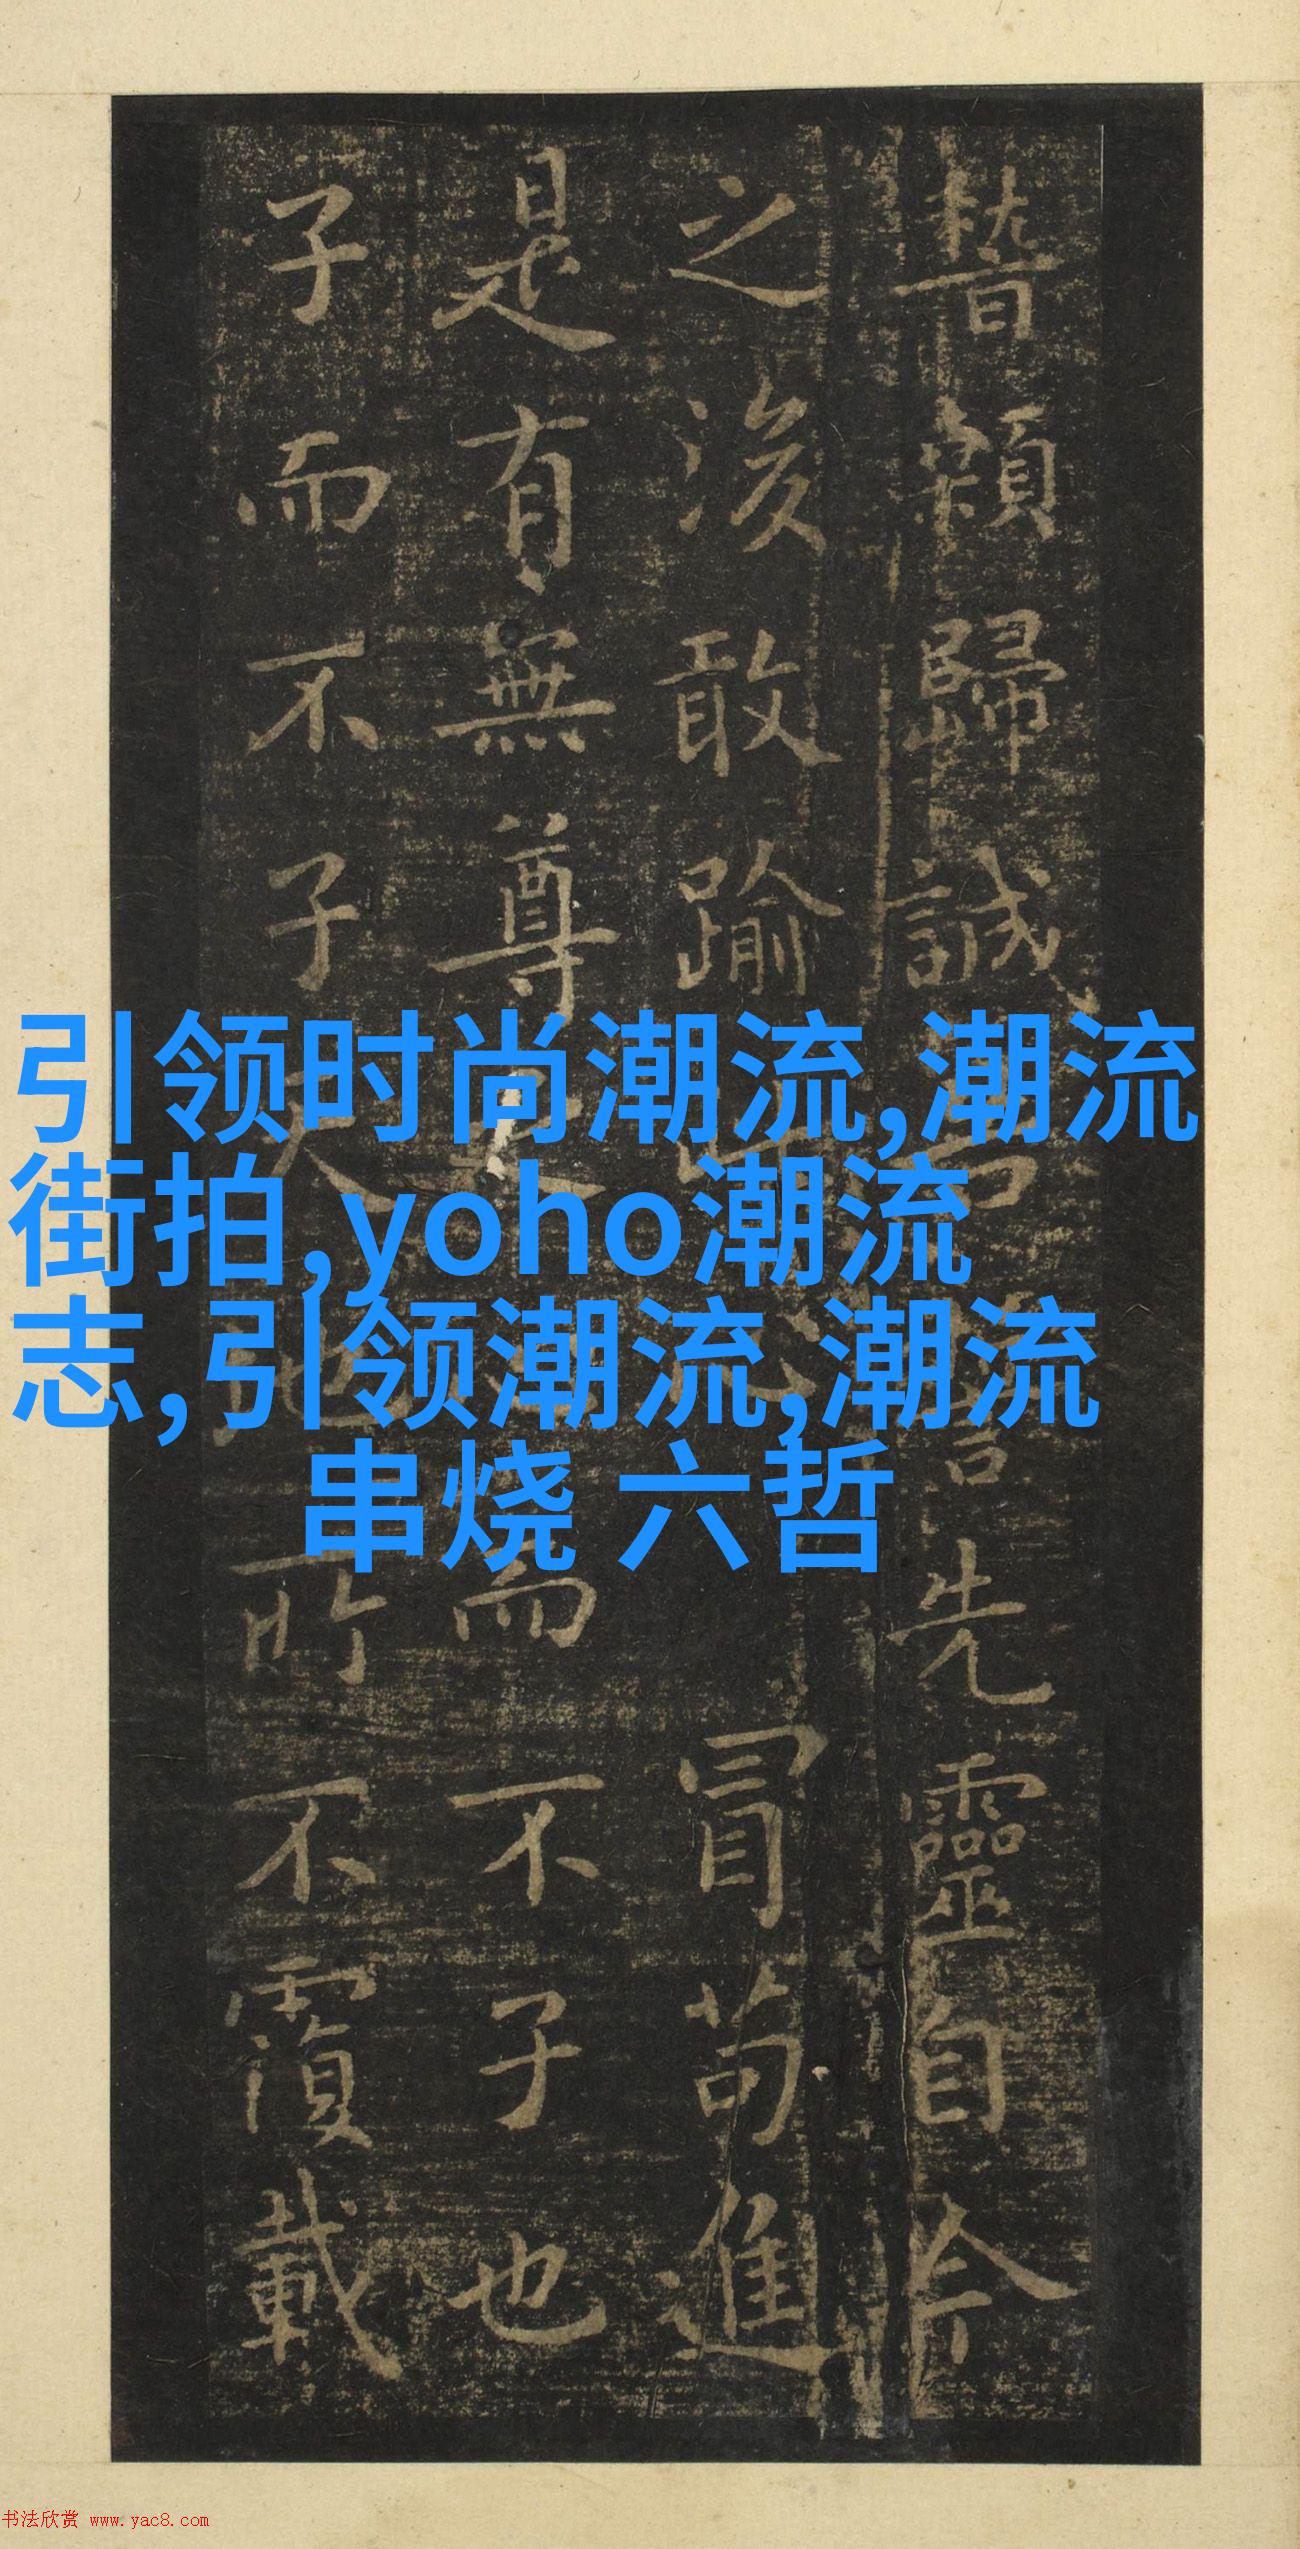 引领时尚潮流,潮流
街拍,yoho潮流
志,引领潮流,潮流
串烧 六哲
稽顙歸誠告誓先靈自今
之後敢踰此心冒苟進
是有無尊之而不子也
子而不子天地所不覆載
书法欣赏 www.yac8.com